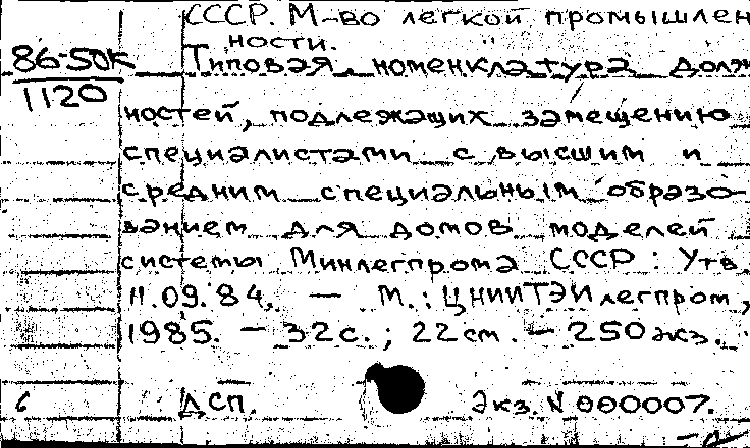 СССР. М-во легкой промышлен
ности.
86-50К
Типовая номенклатура долж
1120
ностей, подлежащих замещению
специалистами с высшим и
средним специальным образо-
ванием для домов моделей
системы Минлегпрома СССР: Утв.
11.09.84. — М.: ЦНИИТЭИлегпром,
1985. — 32с.; 22см. — 250экз.
6 ДСП. Экз. N 000007.